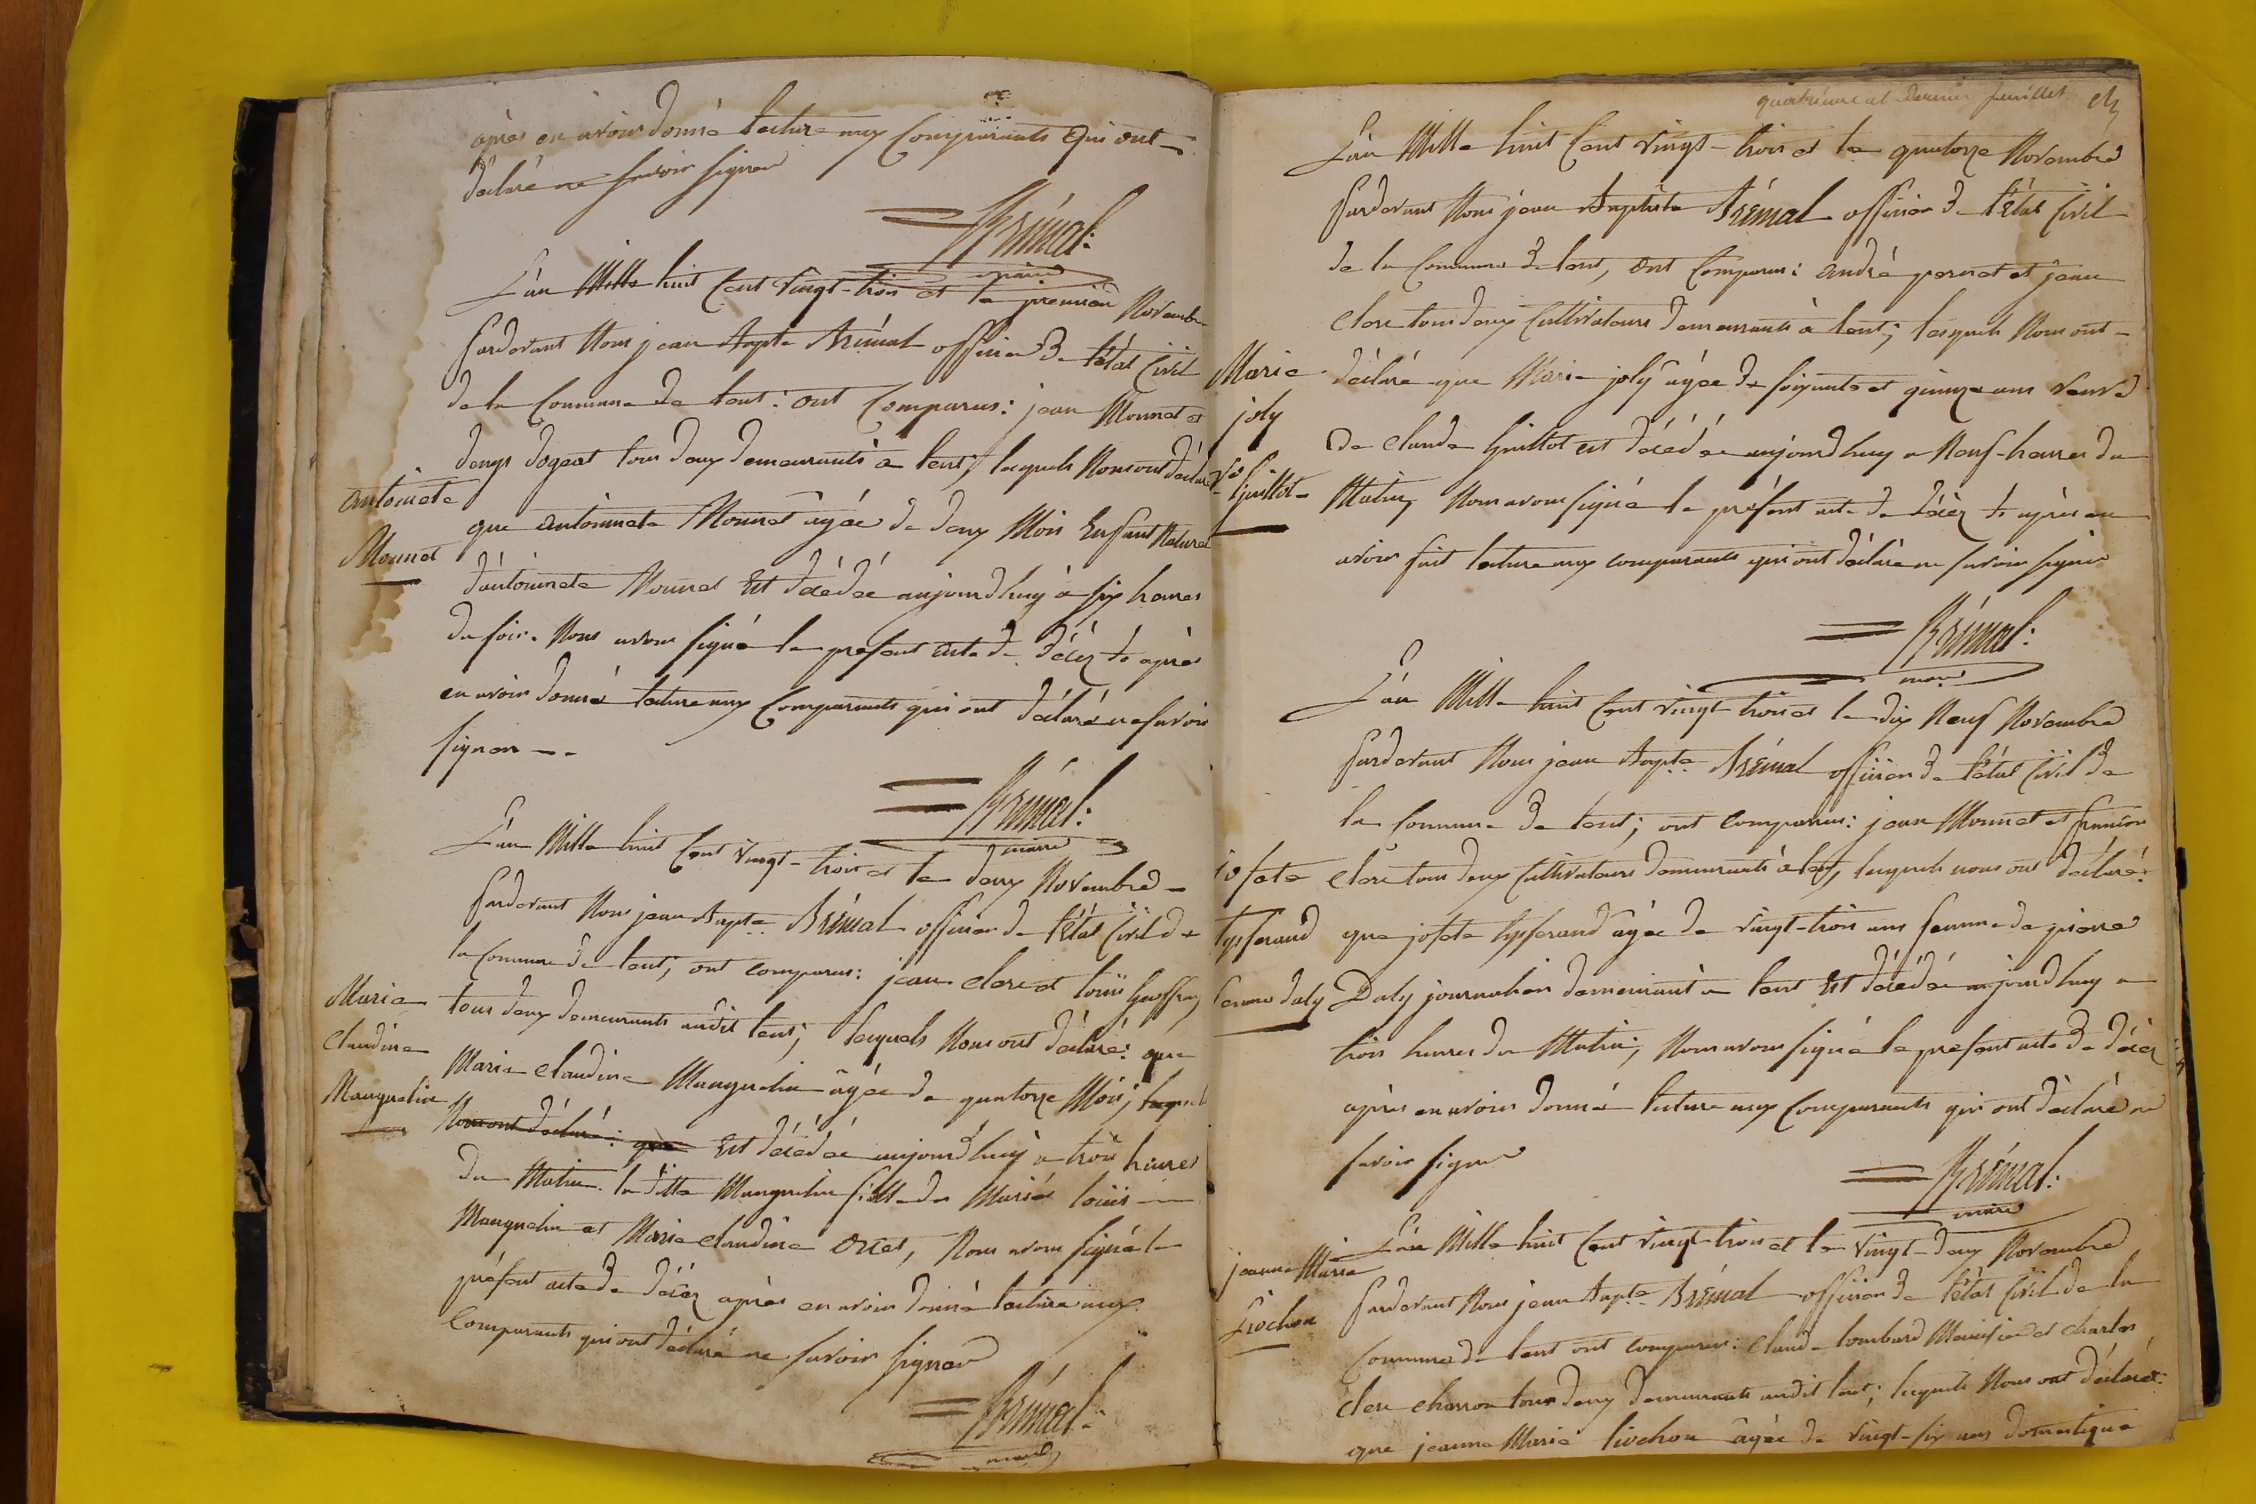 après en avoir donné lecture aux Comparants Qui ont
déclaré ne savoir signer
Brémal:
maire
L'an Mille huit Cent vingt-trois et le premier Novembre
Pardevant Nous jean Bapte Brémal officier De l'état Civil
de la Commune De Lent: ont Comparus: jean Monnet et
denys dogeat tous deux demeurants à Lent; lesquels Nous ont déclaré
Antoinete
que Antoinete Monnet âgée de deux Mois Enfant Naturel
Monnet
d'antoinete Monnet Est décédée aujourd huy à six heures
du soir. Nous avons signé le présent acte de décèz & après
en avoir donné lecture aux Comparants qui ont déclaré ne savoir
signer --
Brémal:
maire
L'an Mille huit Cent vingt-trois et le deux Novembre -
Pardevant Nous jean Bapte Brémal officier de l'état Civil de
la Commune de Lent; ont comparus: jean clerc et louis Geoffray
Marie
tous deux demeurants audit Lent; lesquels Nous ont déclaré: que
claudine
Marie claudine Manguelin âgée de quatorze Mois, lesquels
Manguelin
Nous ont déclaré: que Est décédée aujourd'huy à trois heures
du Matin. la ditte Manguelin fille de Mariés louis
Manguelin et Marie claudine Orcet, Nous avons signé le
présent acte de décèz après en avoir donné lecture aux
Comparants qui ont déclaré ne savoir signer
Brémal:
maire
quatrième et Dernier feuillet
L'an Mille huit Cent vingt-trois et le quatorze Novembre
Pardevant Nous jean Baptiste Brémal officier De l'état Civil
de la Commune De Lent, ont Comparus: andré pernet et jean
clerc tous deux Cultivateurs demeurants à Lent; lesquels Nous ont
Marie
déclaré que Marie joly âgée de soixante et quinze ans veuve
joly
De claude Guillot est décédée aujourdhuy a Neuf-heures du
Ve Guillot
Matin, Nous avons signé le présent acte de décèz & après en
avoir fait lecture aux comparants qui ont déclaré ne savoir signer
Brémal:
maire
L'an Mille huit Cent vingt trois et le dix Neuf Novembre
Pardevant Nous jean Bapte Brémal officier de l'état Civil De
la Commune De Lent; ont comparus: jean Monnet et
josete
clerc tous deux Cultivateurs demeurants à Lent, lesquels nous ont déclaré:
Tysserand
que josete tysserand âgée de vingt-trois ans femme de pierre
femme Daly
Daly journalier demeurant à Lent Est décédée aujourdhuy a
trois heures du Matin; Nous avons signé le présent acte De décèz
après en avoir donné lecture aux Comparants qui ont déclaré ne
savoir signer
Brémal:
maire
L'an Mille huit Cent vingt trois et le vingt-deux Novembre
jeanne Marie
Pardevant Nous jean Bapte Brémal officier de l'état Civil de la
Liochon
Commune de Lent ont comparus: claude lombard Menuisier et charles
clerc charron tous deux demeurants audit Lent; lesquels Nous ont déclaré:
que jeanne Marie liochon âgée de vingt-six ans domestique